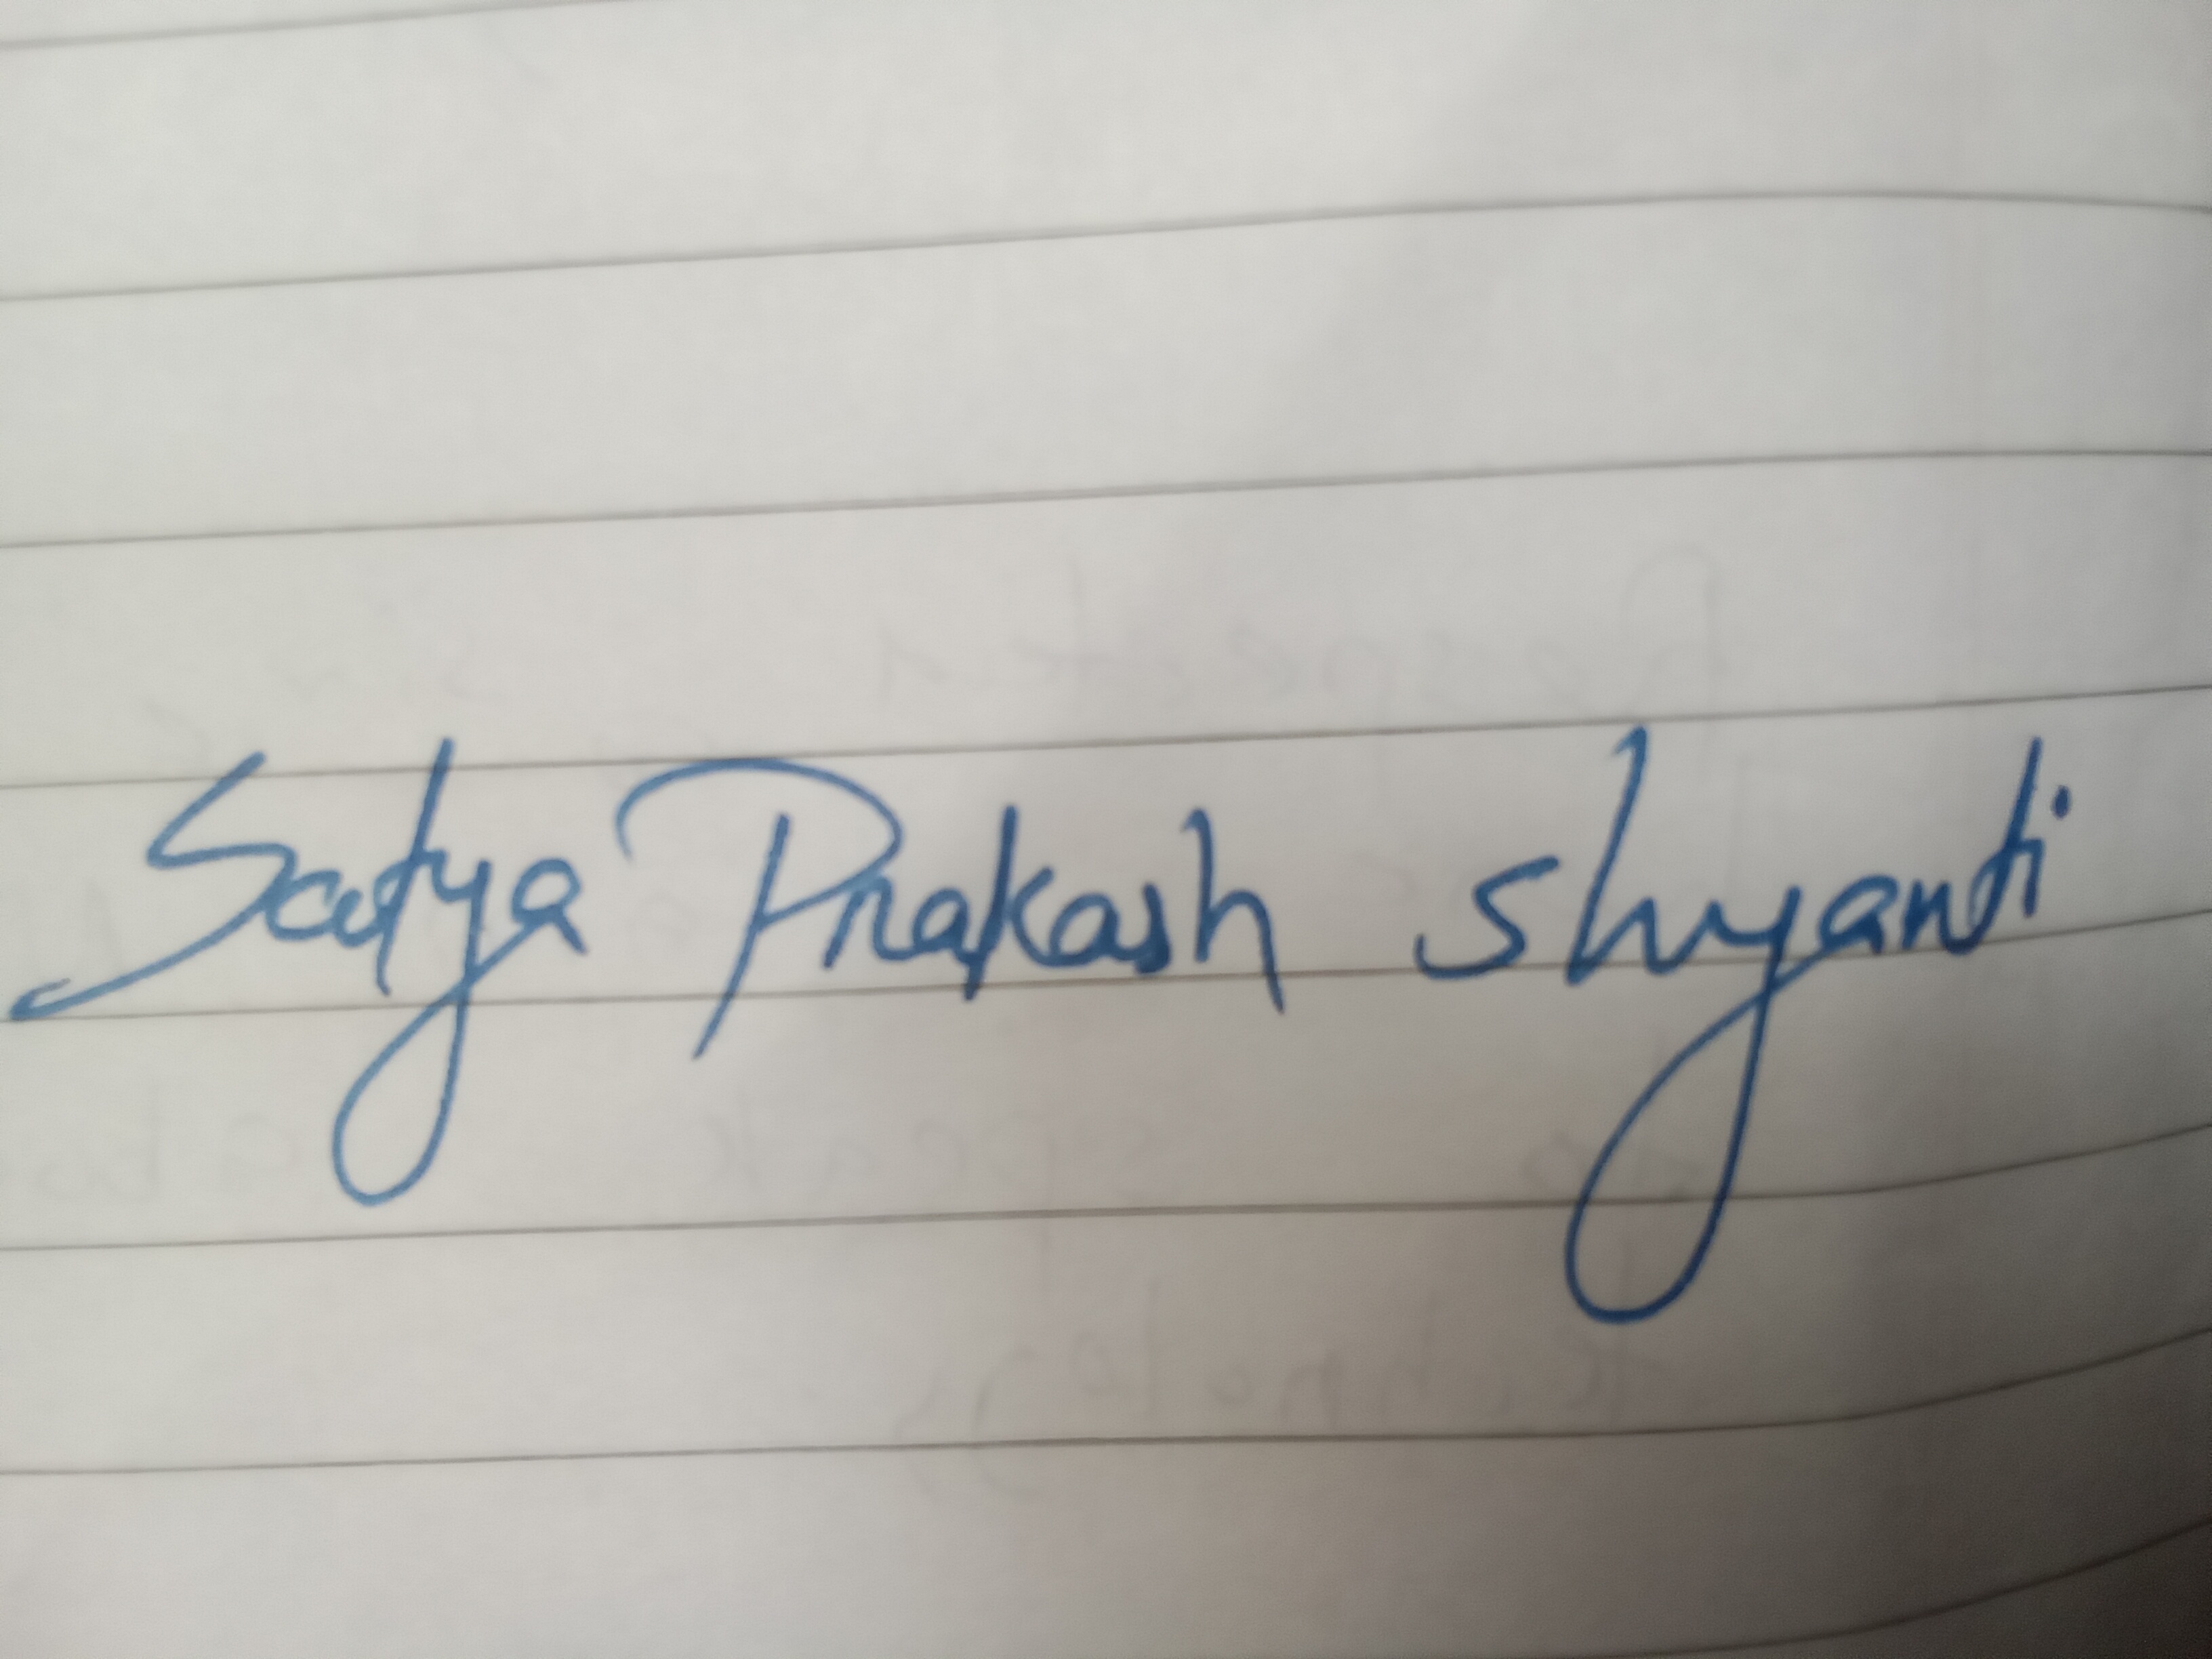 Satya Prakash Shyanti